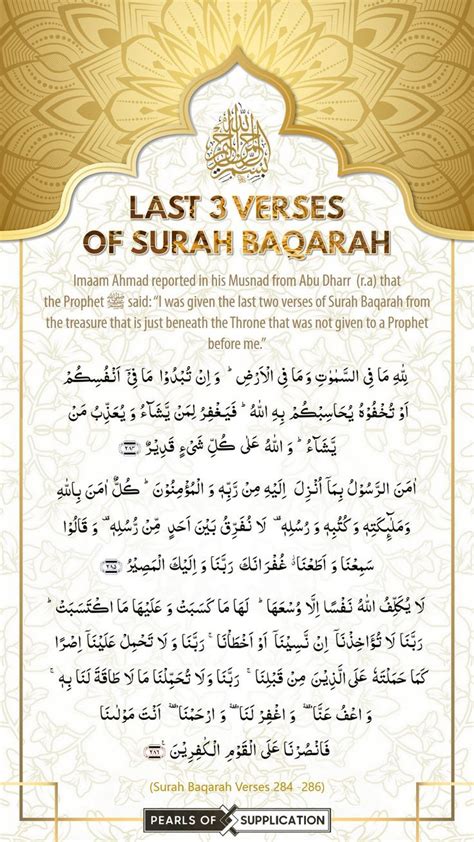 بسم الله الرحمن الرحيم
LAST 3 VERSES
OF SURAH BAQARAH
Imaam Ahmad reported in his Musnad from Abu Dharr (r.a) that
the Prophet ﷺ said: “I was given the last two verses of Surah Baqarah from
the treasure that is just beneath the Throne that was not given to a Prophet
before me.”
لِلّٰهِ مَا فِى السَّمٰوٰتِ وَمَا فِى الْاَرْضِ ؕ وَ اِنْ تُبْدُوْا مَا فِىْۤ اَنْفُسِكُمْ
اَوْ تُخْفُوْهُ يُحَاسِبْكُمْ بِهِ اللّٰهُ ؕ فَيَغْفِرُ لِمَنْ يَّشَآءُ وَ يُعَذِّبُ مَنْ
يَّشَآءُ ؕ وَ اللّٰهُ عَلٰى كُلِّ شَىْءٍ قَدِيْرٌ ﴿۲۸۴﴾
اٰمَنَ الرَّسُوْلُ بِمَاۤ اُنْزِلَ اِلَيْهِ مِنْ رَّبِّهٖ وَ الْمُؤْمِنُوْنَ ؕ كُلٌّ اٰمَنَ بِاللّٰهِ
وَمَلٰٓئِكَتِهٖ وَ كُتُبِهٖ وَ رُسُلِهٖ ۟ لَا نُفَرِّقُ بَيْنَ اَحَدٍ مِّنْ رُّسُلِهٖ ۟ وَ قَالُوْا
سَمِعْنَا وَ اَطَعْنَا ٭۫ غُفْرَانَكَ رَبَّنَا وَ اِلَيْكَ الْمَصِيْرُ ﴿۲۸۵﴾
لَا يُكَلِّفُ اللّٰهُ نَفْسًا اِلَّا وُسْعَهَا ؕ لَهَا مَا كَسَبَتْ وَ عَلَيْهَا مَا اكْتَسَبَتْ ؕ
رَبَّنَا لَا تُؤَاخِذْنَاۤ اِنْ نَّسِيْنَاۤ اَوْ اَخْطَاْنَا ۚ رَبَّنَا وَ لَا تَحْمِلْ عَلَيْنَاۤ اِصْرًا
كَمَا حَمَلْتَهٗ عَلَى الَّذِيْنَ مِنْ قَبْلِنَا ۚ رَبَّنَا وَلَا تُحَمِّلْنَا مَا لَا طَاقَةَ لَنَا بِهٖ ۚ
وَ اعْفُ عَنَّا ۥ وَ اغْفِرْ لَنَا ۥ وَ ارْحَمْنَا ۥ اَنْتَ مَوْلٰىنَا
فَانْصُرْنَا عَلَى الْقَوْمِ الْكٰفِرِيْنَ ﴿۲۸۶﴾
(Surah Baqarah Verses 284 -286)
PEARLS OF SUPPLICATION